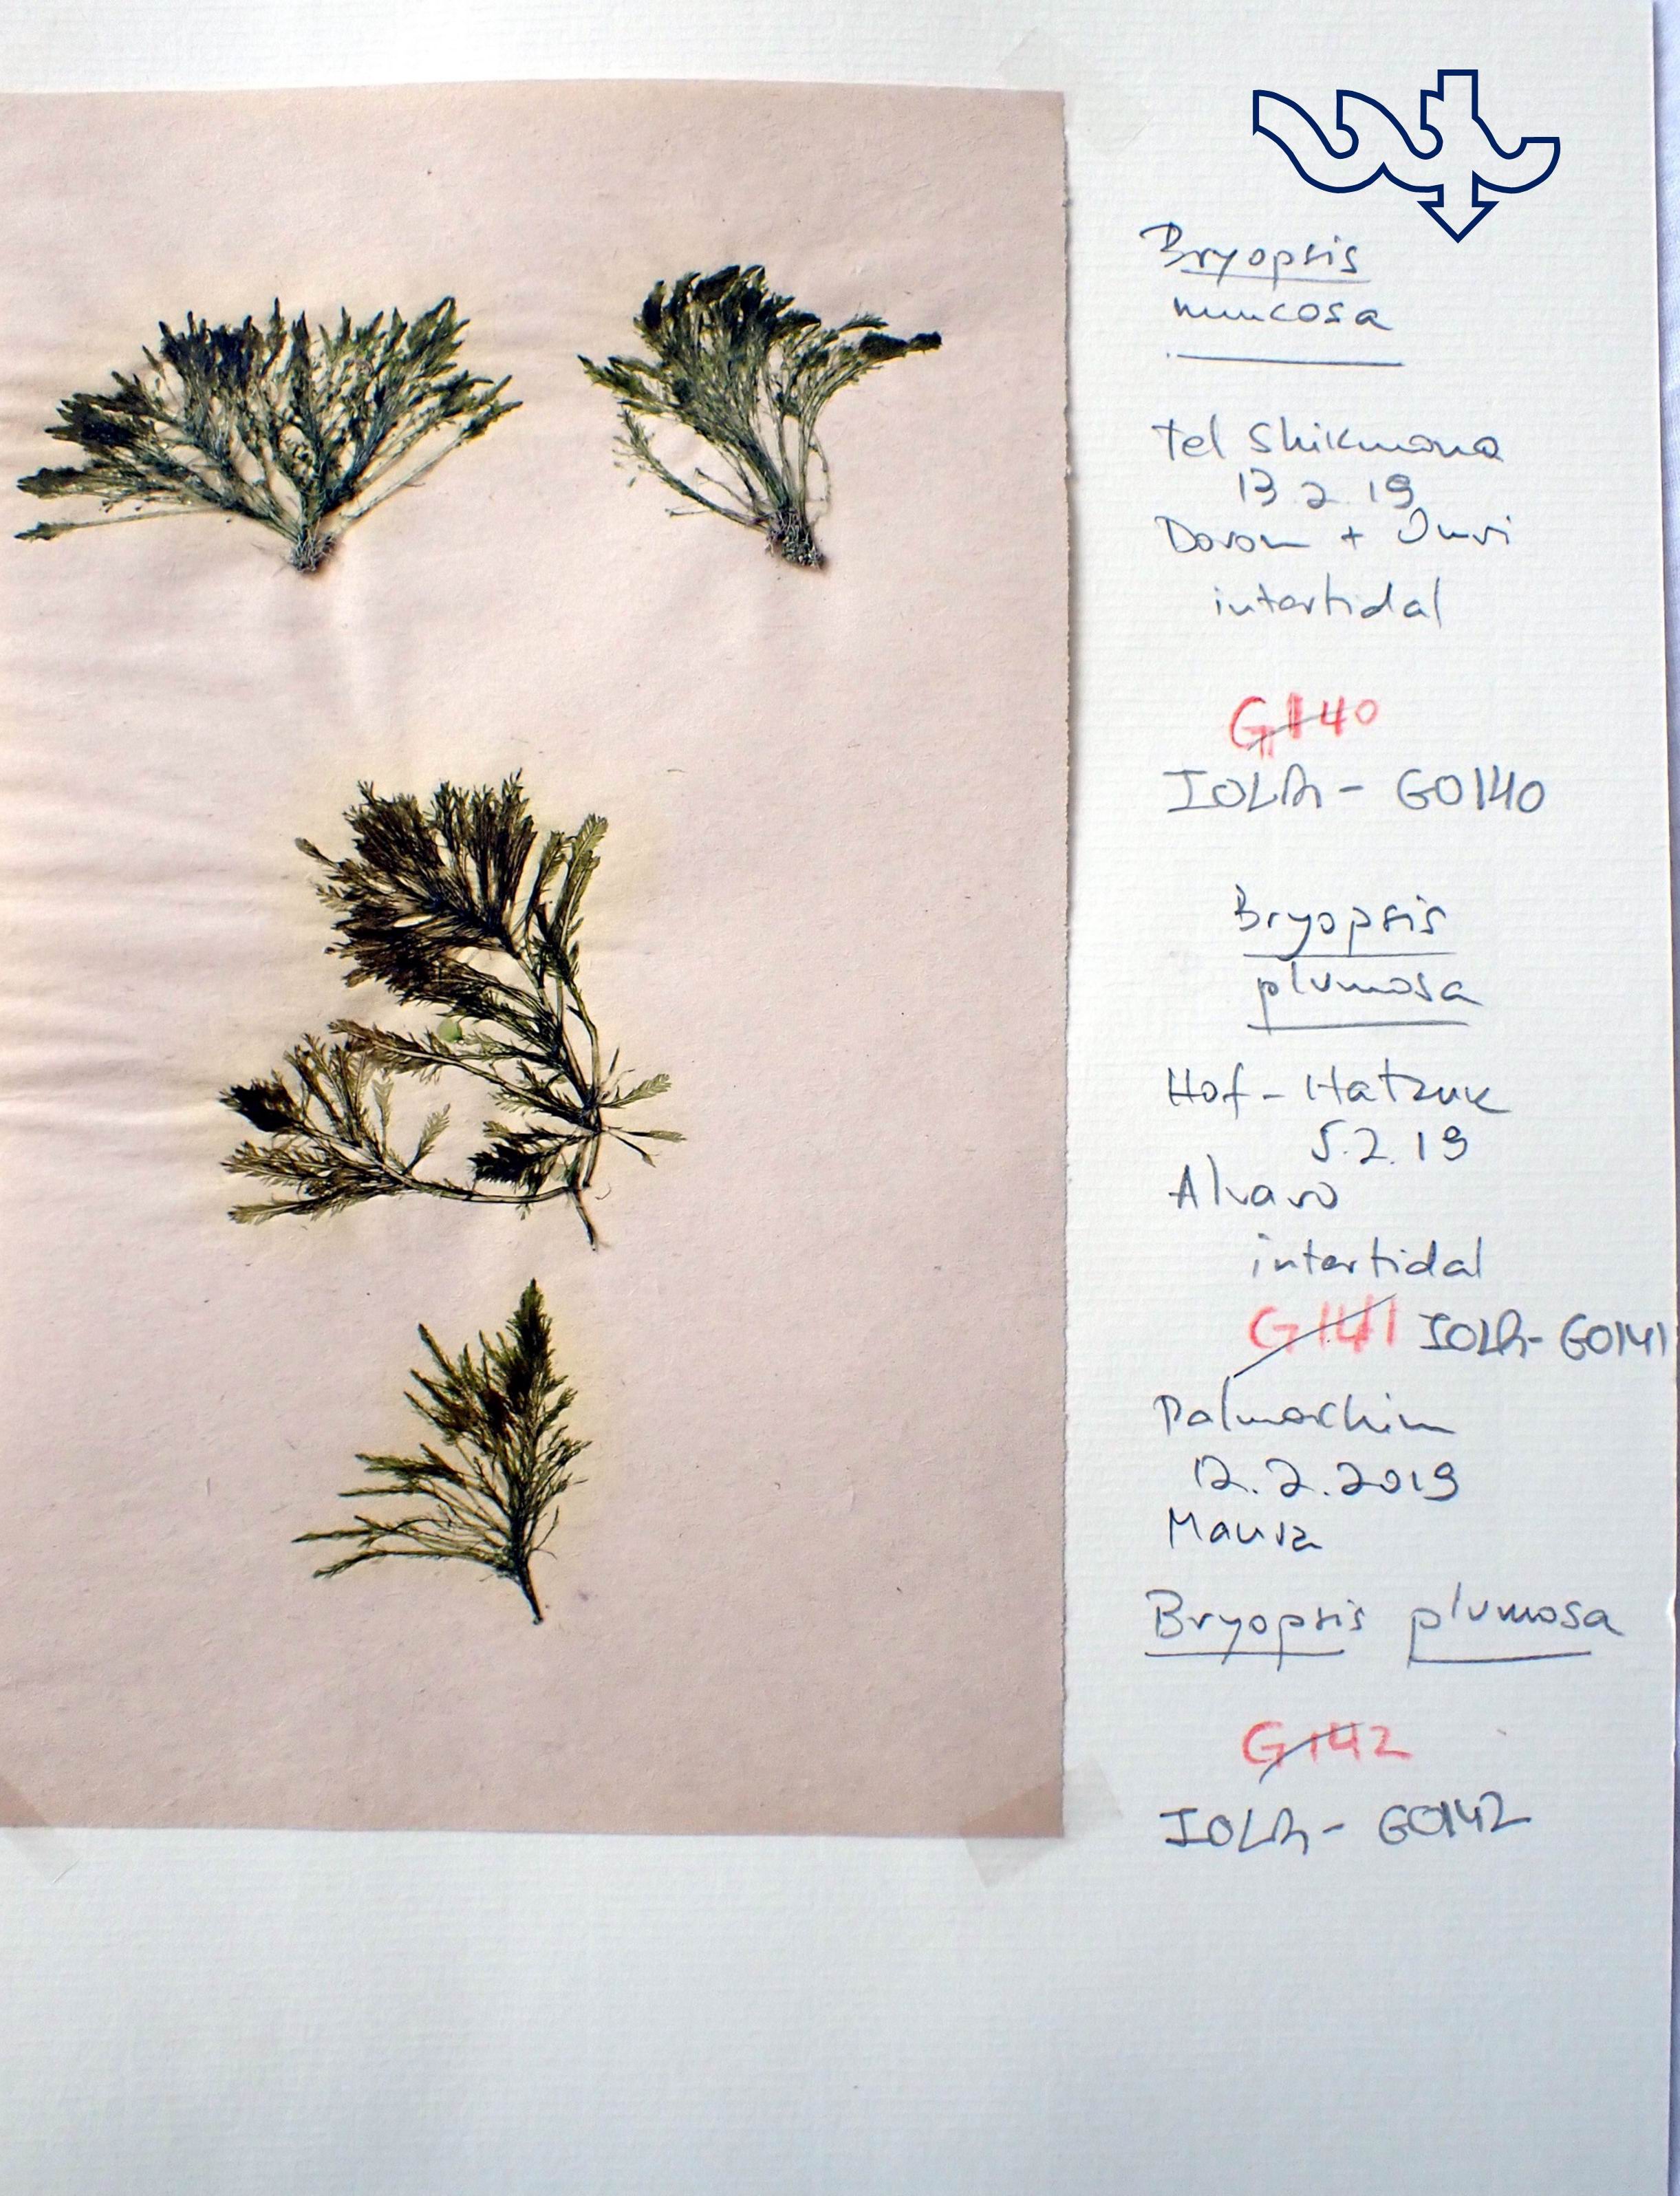 Bryopsis
muscosa
Tel Shikmona
13.2.19
Doron + Omri
intertidal
G140
IOLR- G0140
Bryopsis
plumosa
Hof-Hatzuk
5.2.19
Alvaro
intertidal
G141 IOLR- G0141
Palmachim
12.2.2019
Bryopsis plumosa
G142
IOLR- G0142